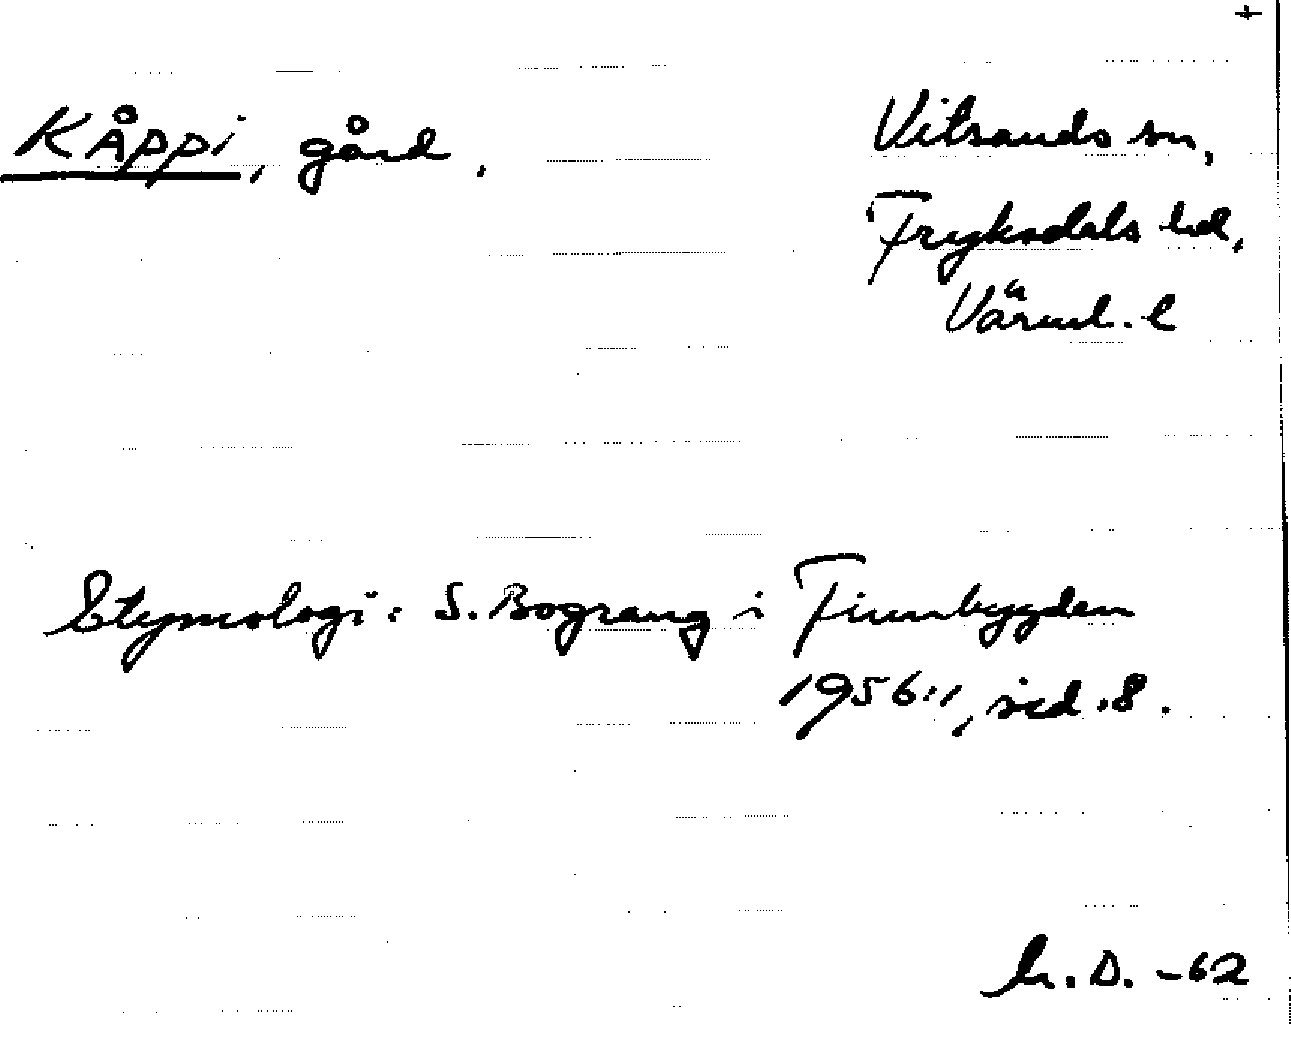 +
KÅPPi, gård.
Vitsands sn,
Fryksdals hd,
Värml. l
Etymologi: S. Bograng i Finnbygden
1956:1, sid. 8.
D. -62